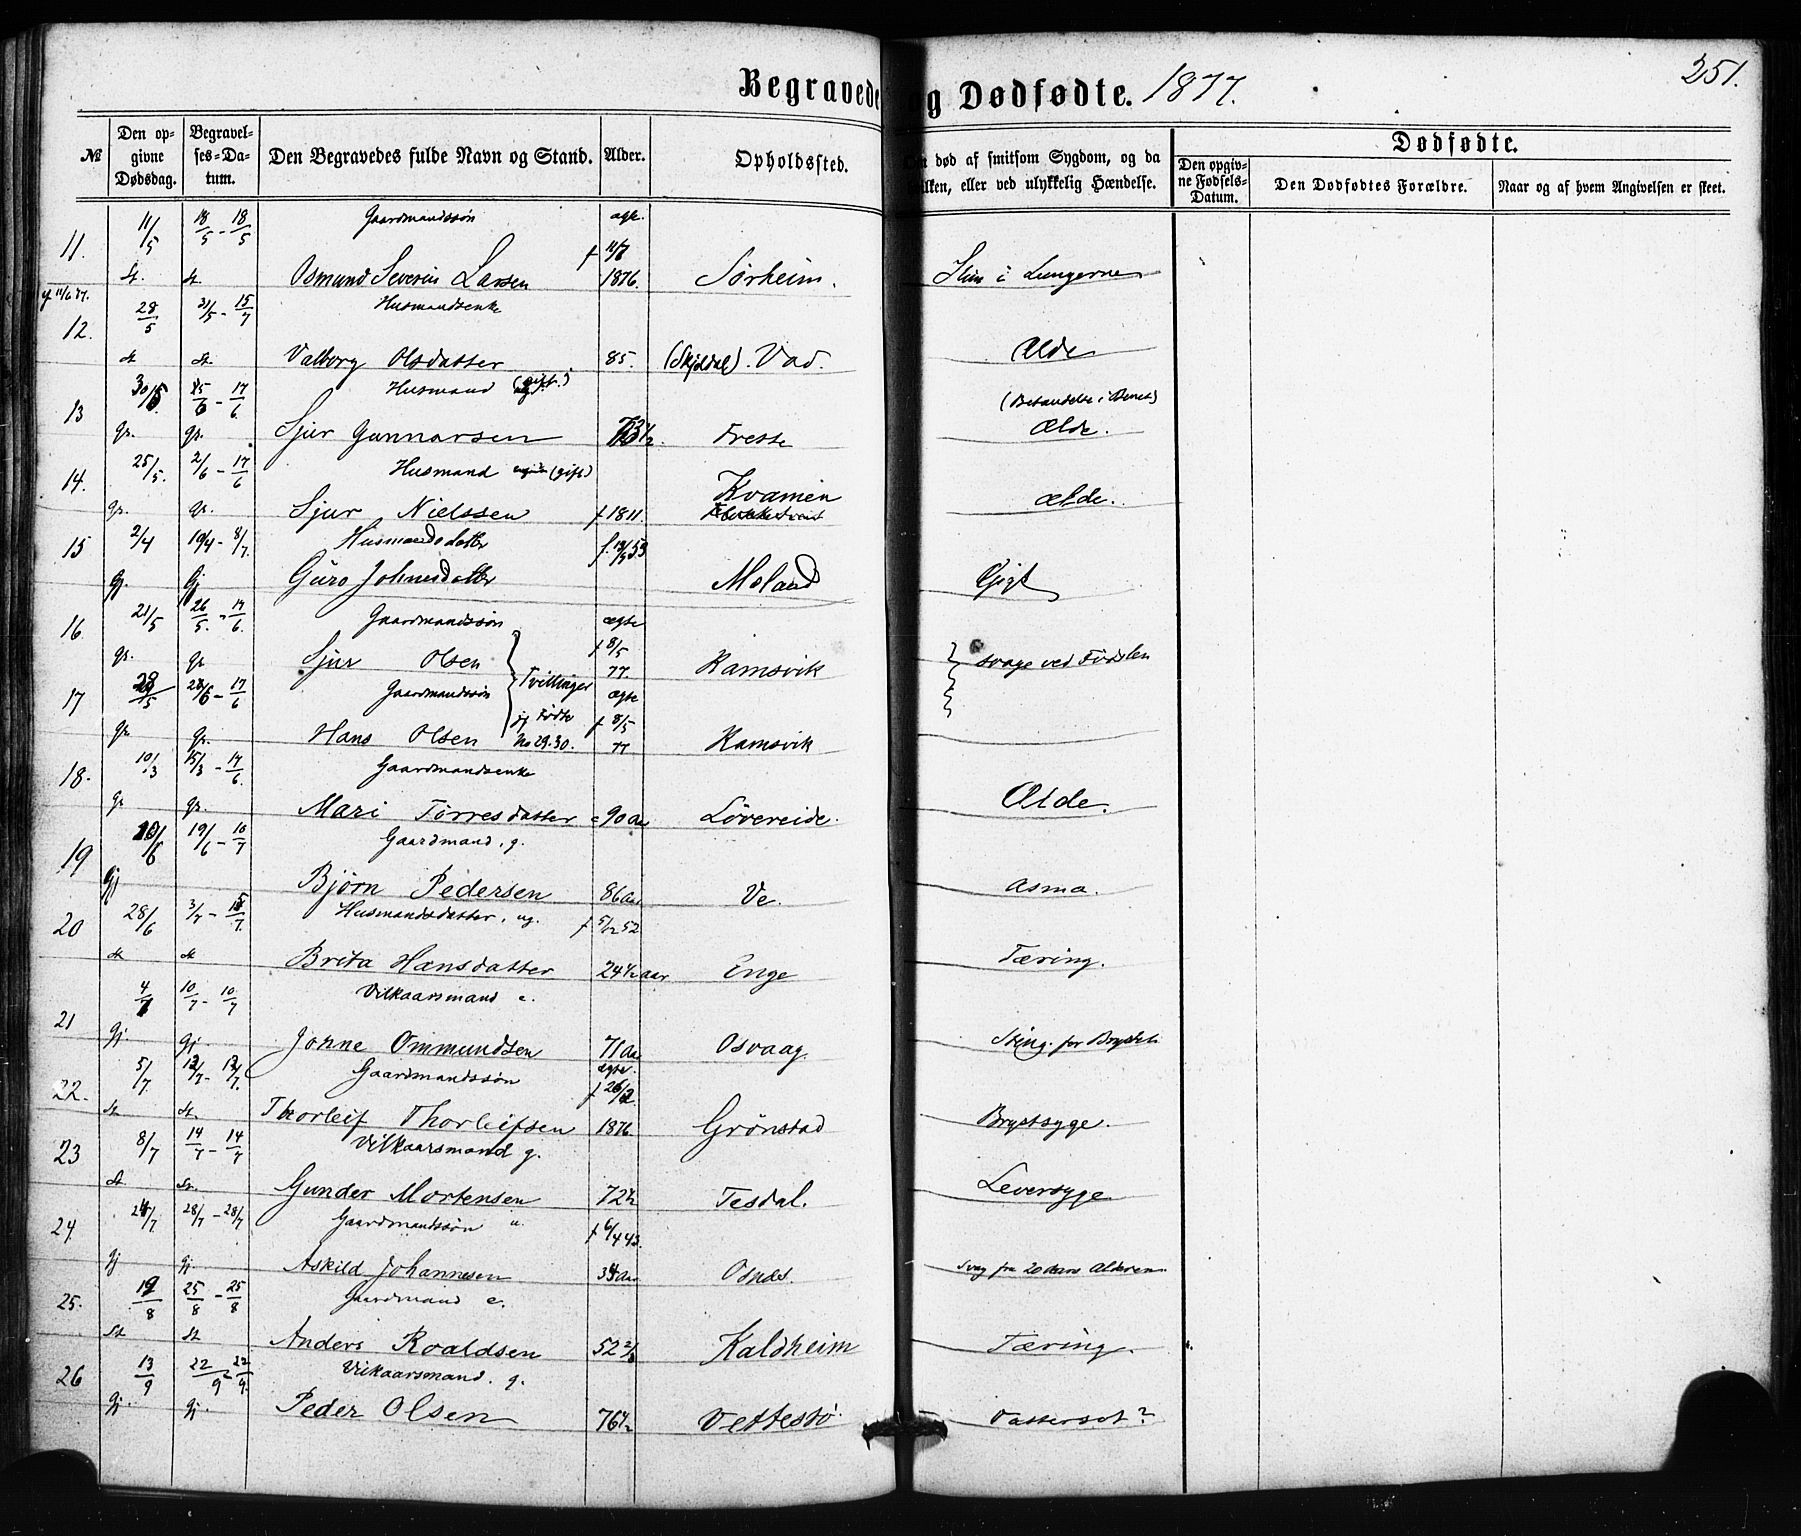 Begravede og Dødfødte. 1877. 251.
№ Den opgivne Dødsdag. Begravelses-Datum. Den Begravedes fulde Navn og Stand. Alder. Opholdssted. død af smitsom Sygdom, og da hvilken, eller ved ulykkelig Hændelse. Dødfødte.
Den opgivne Fødsels-Datum. Den Dødfødtes Forældre. Naar og af hvem Angivelsen er skeet.
11. 11/5 18/5 - 18/5 Gaardmandssøn ægte.
St. St. Osmund Severin Larsen 1876. Sørheim. Slim i Lungerne
12. 28/5 31/5 - 15/7 Husmandsenke
St. St. Valborg Olsdatter 85. (Skjoldal). Vad. Ælde
13 30/5 15/6 - 17/6 Husmand (gift.)
Gr. Gr. Sjur Gunnarsen 73 1/2. Frette Ælde.
14. 25/5. 2/6 - 17/6 Husmand (gift)
Gr. Gr. Sjur Nielssen f 1811. Kvamen Ælde.
15 2/4 10/4 - 8/7. Husmandsdatter
Gj. Gj Guro Johnesdatter Moland Gigt
16 21/5 26/5. - 17/6. Gaardmandssøn ægte
Gr. Gr Sjur Olsen f 8/5 77. Ramsvik svage ved Fødselen
Tvillinger
17 28/6 - 17/6 Gaardmandssøn ægte
jf Fødte No 29.30.
Gr. Gr. Hans Olsen f 8/5 77 Ramsvik
18. 10/3 15/3 - 17/6. Gaardmandsenke
Gr Gr. Mari Tørresdatter 90 Aar Løvereide. Ælde.
19 10/6 19/6 - 10/7 Gaardmand. g.
Gj Bjørn Pedersen 86 Aar Ve. Asma.
20 28/6 3/7 - 15/7. Husmandsdatter. ug. f 5/12 52
St St Brita Hansdatter 24 1/2 aar Enge Tæring.
21 4/7 10/7 - 10/7 Vilkaarsmand e.
Gj. Gj Johne Ommundsen 71 Aar Osvaag. Sting for Brystet
22. 5/7 12/7 - 12/7. Gaardmandssøn ægte. f 26/2
St St. Thorleif Thorleifsen 1876. Grønstad Brystsyge.
23 8/7 14/7 - 14/7 Vilkaarsmand g.
St St. Gunder Mortensen 72 1/2 Tesdal. Leversyge
24 24/7 28/7 - 28/7 Gaardmandssøn u. f 6/4 43.
Gj Gj. Askild Johannesen 34 Aar Osnes. Svag fra 20 Alderen
25. 19/8 25/8 - 25/8 Gaardmand e.
St St Anders Roaldsen 52 2/3 Kaldheim Tæring.
26 13/9 22/9 - 22/9. Vilkaarsmand. g.
Gj. Gj. Peder Olsen 76 1/2 Vettestø Vattersot?